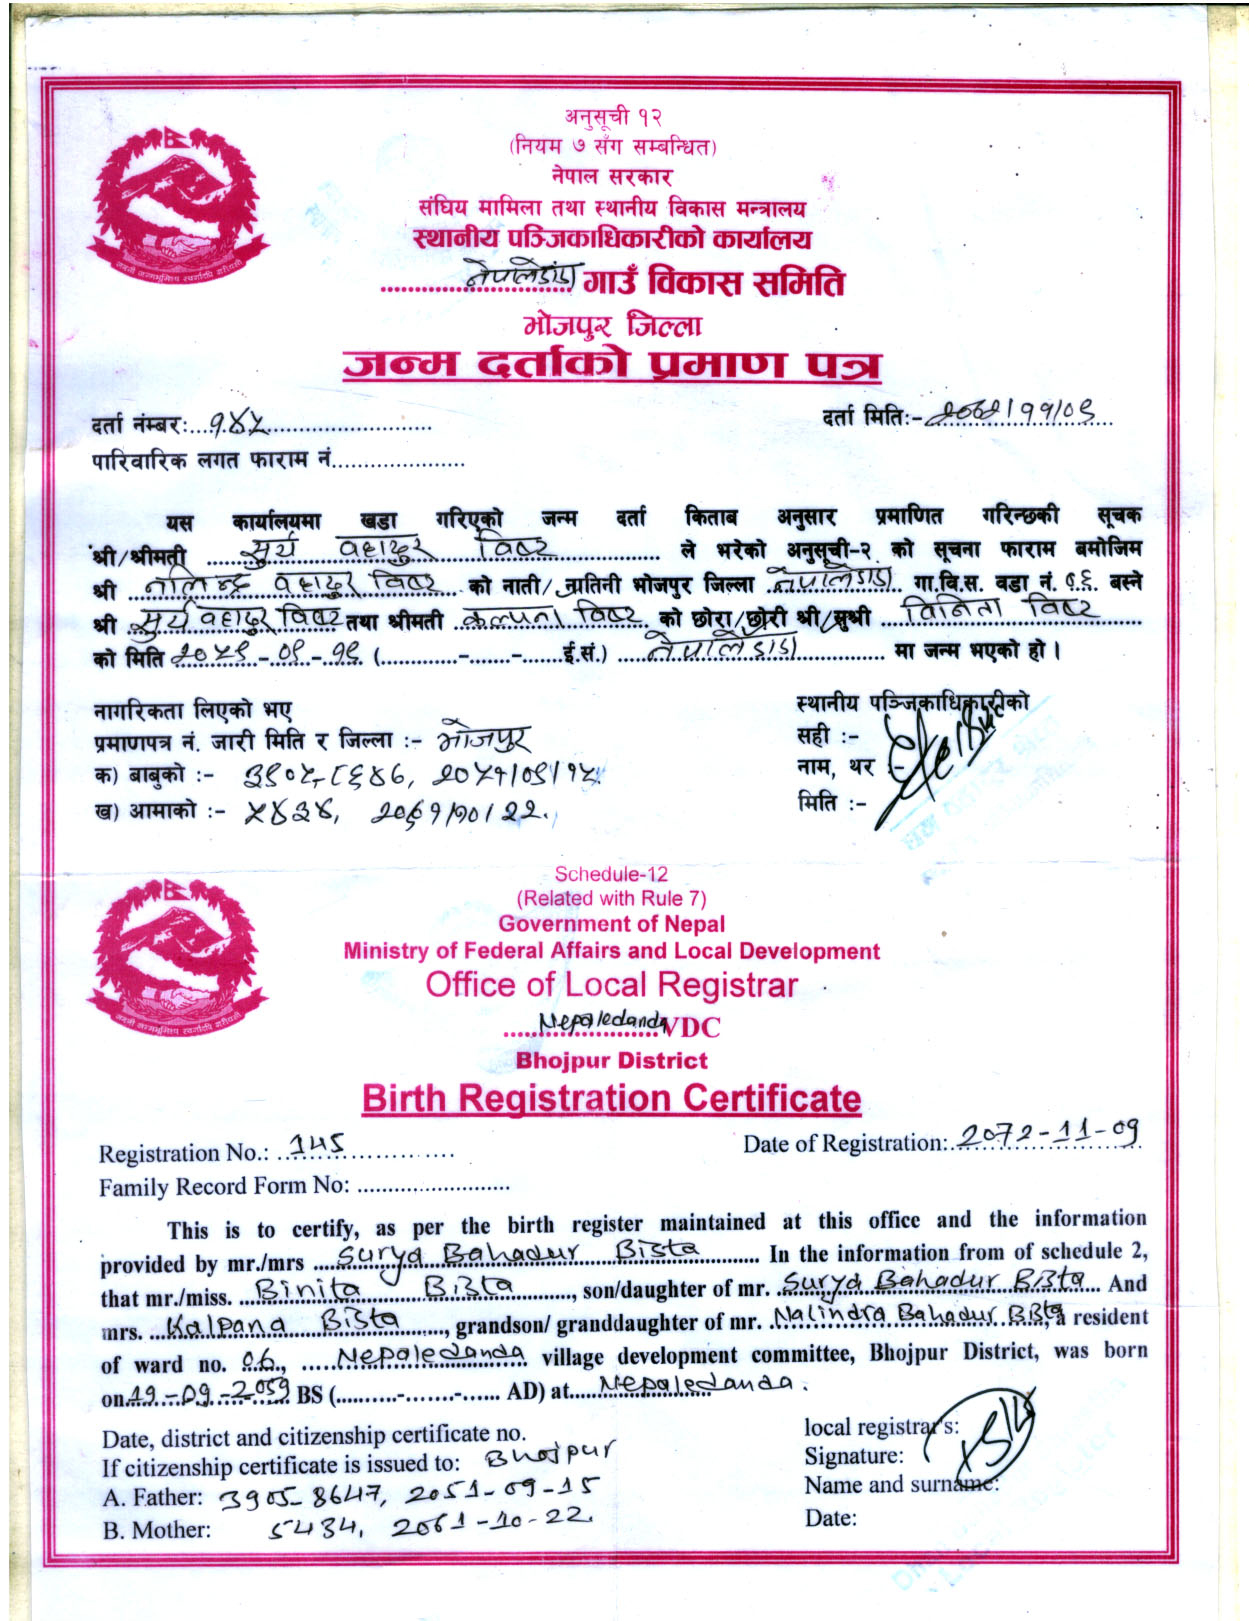 अनुसूची १२
(नियम ७ सँग सम्बन्धित)
नेपाल सरकार
संघिय मामिला तथा स्थानीय विकास मन्त्रालय
स्थानीय पञ्जिकाधिकारीको कार्यालय
नेपालेडाँडा गाउँ विकास समिति
भोजपुर जिल्ला
जन्म दर्ताको प्रमाण पत्र
दर्ता नंम्बर:...१४५
दर्ता मिति:- २०७२।११।०९
पारिवारिक लगत फाराम नं.
यस कार्यालयमा खडा गरिएको जन्म दर्ता किताब अनुसार प्रमाणित गरिन्छकी सूचक
श्री/श्रीमती सुर्य वहादुर विष्ट ले भरेको अनुसूची-२ को सूचना फाराम बमोजिम
श्री नलिन्द्र वहादुर विष्ट को नाती/नातिनी भोजपुर जिल्ला नेपालेडाँडा गा.बि.स. वडा नं. ०६ बस्ने
श्री सुर्य वहादुर विष्ट तथा श्रीमती कल्पना विष्ट को छोरा/छोरी श्री/सुश्री विनिता विष्ट
को मिति २०५९-०९-१९ (............-.......-.......ई.सं.) नेपालेडाँडा मा जन्म भएको हो ।
नागरिकता लिएको भए
प्रमाणपत्र नं. जारी मिति र जिल्ला :- भोजपुर
क) बाबुको :- ३९०५-८६४७, २०५१/०९/१५
ख) आमाको :- ५४३४, २०६१/१०/२२.
स्थानीय पञ्जिकाधिकारीको
सही :-
नाम, थर :-
मिति :-
Schedule-12
(Related with Rule 7)
Government of Nepal
Ministry of Federal Affairs and Local Development
Office of Local Registrar
Nepaledanda VDC
Bhojpur District
Birth Registration Certificate
Registration No.: 145
Date of Registration: 2072-11-09
Family Record Form No:
This is to certify, as per the birth register maintained at this office and the information
provided by mr./mrs Surya Bahadur Bista In the information from of schedule 2,
that mr./miss. Binita Bista, son/daughter of mr. Surya Bahadur Bista And
mrs. Kalpana Bista, grandson/ granddaughter of mr. Nalindra Bahadur Bista, a resident
of ward no. 06, Nepaledanda village development committee, Bhojpur District, was born
on 19-09-2059 BS (..........-.......-...... AD) at Nepaledanda.
Date, district and citizenship certificate no.
If citizenship certificate is issued to: Bhojpur
A. Father: 3905-8647, 2051-09-15
B. Mother: 5434, 2061-10-22.
local registrar's:
Signature:
Name and surname:
Date: